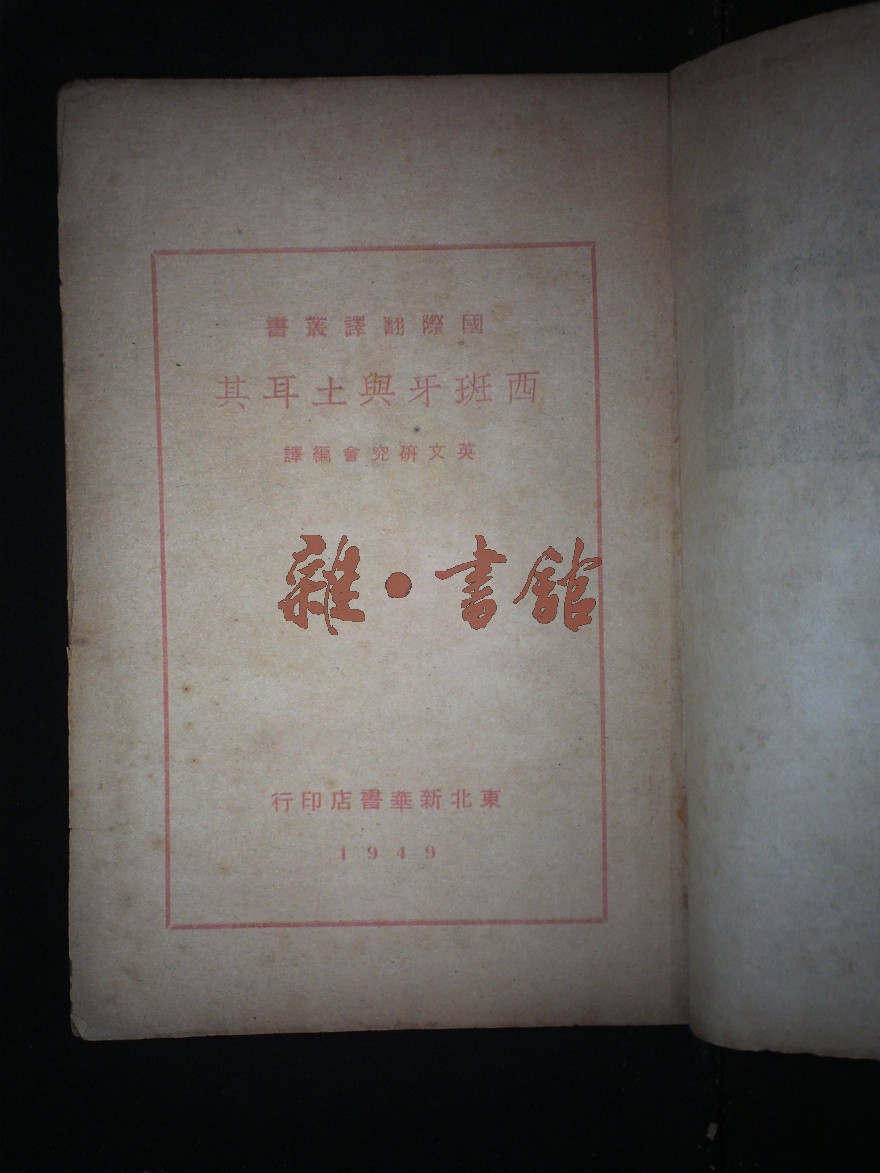 國際翻譯叢書
西班牙與土耳其
英文研究會編譯
雜·書館
東北新華書店印行
1949